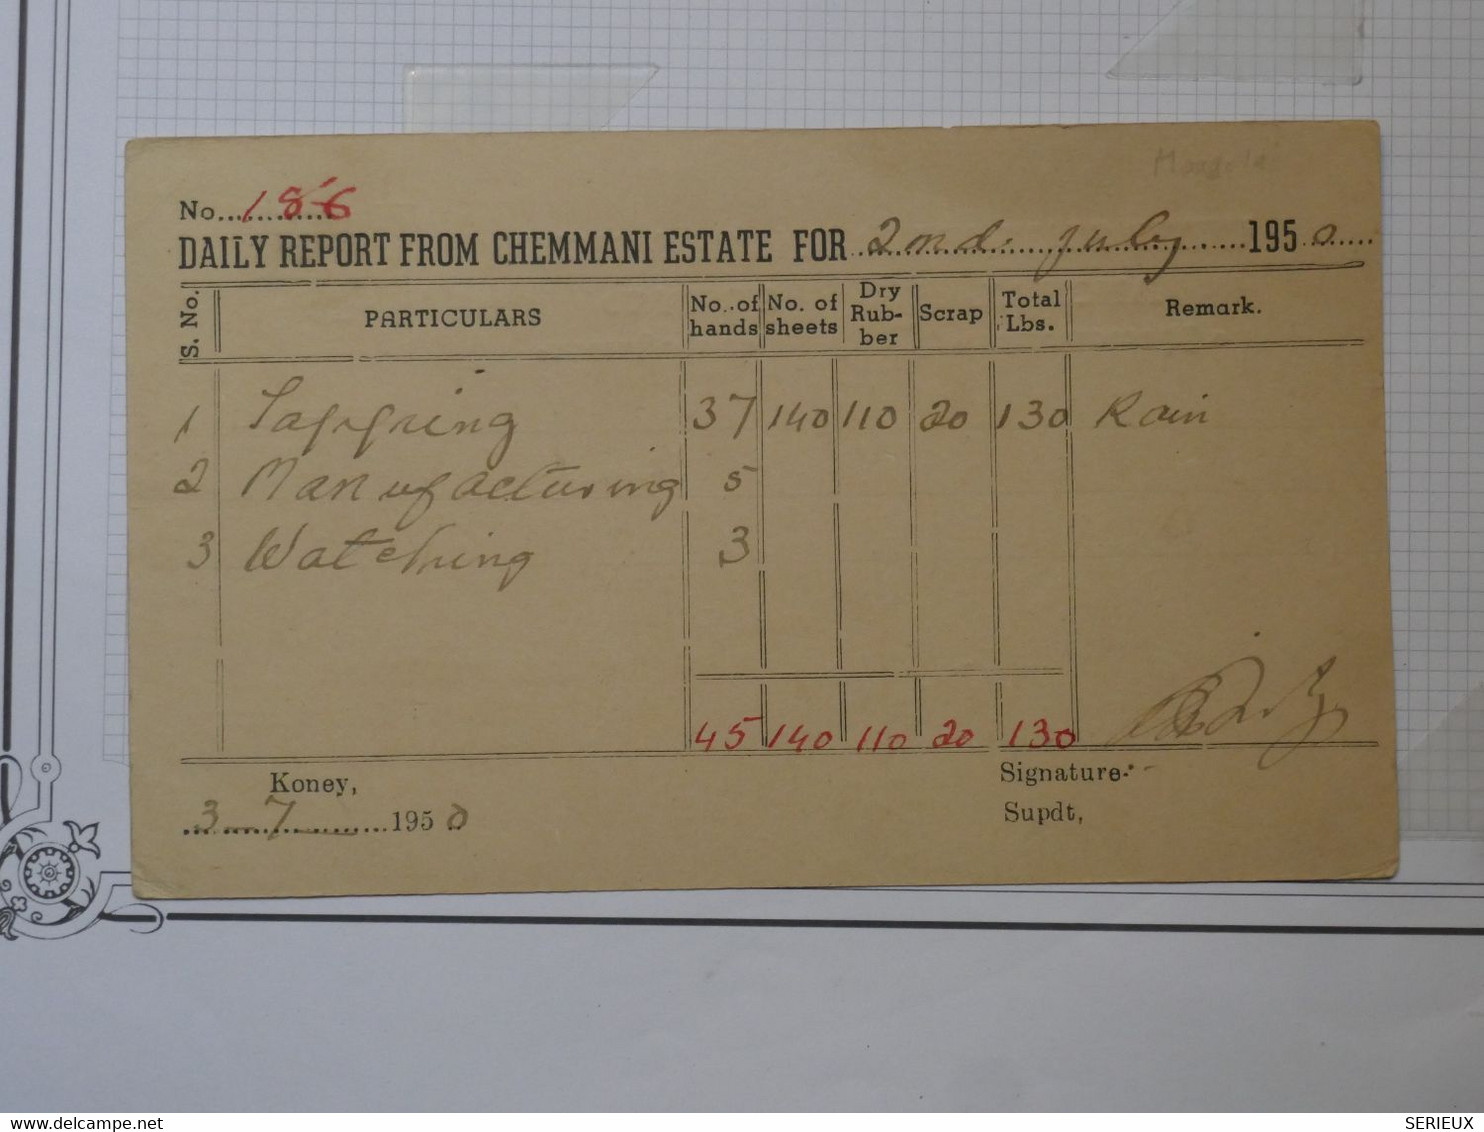 No. 186
DAILY REPORT FROM CHEMMANI ESTATE FOR 2nd July 1950
S. No. PARTICULARS No. of hands No. of sheets Dry Rub- ber Scrap Total Lbs. Remark.
1 Tapping 37 140 110 20 130 Rain
2 Manufacturing 5
3 Watching 3
45 140 110 20 130
Koney, Signature
3-7 1950 Supdt,
delcampe.net
SERIEUX